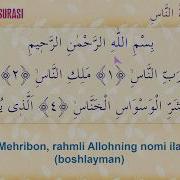 SURASI
ةُ النَّاسِ
بِسْمِ اللَّهِ الرَّحْمٰنِ الرَّحِيمِ
رَبِّ النَّاسِ ﴿١﴾ مَلِكِ النَّاسِ ﴿٢﴾
شَرِّ الْوَسْوَاسِ الْخَنَّاسِ ﴿٤﴾ الَّذِي
Mehribon, rahmli Allohning nomi ila
(boshlayman)